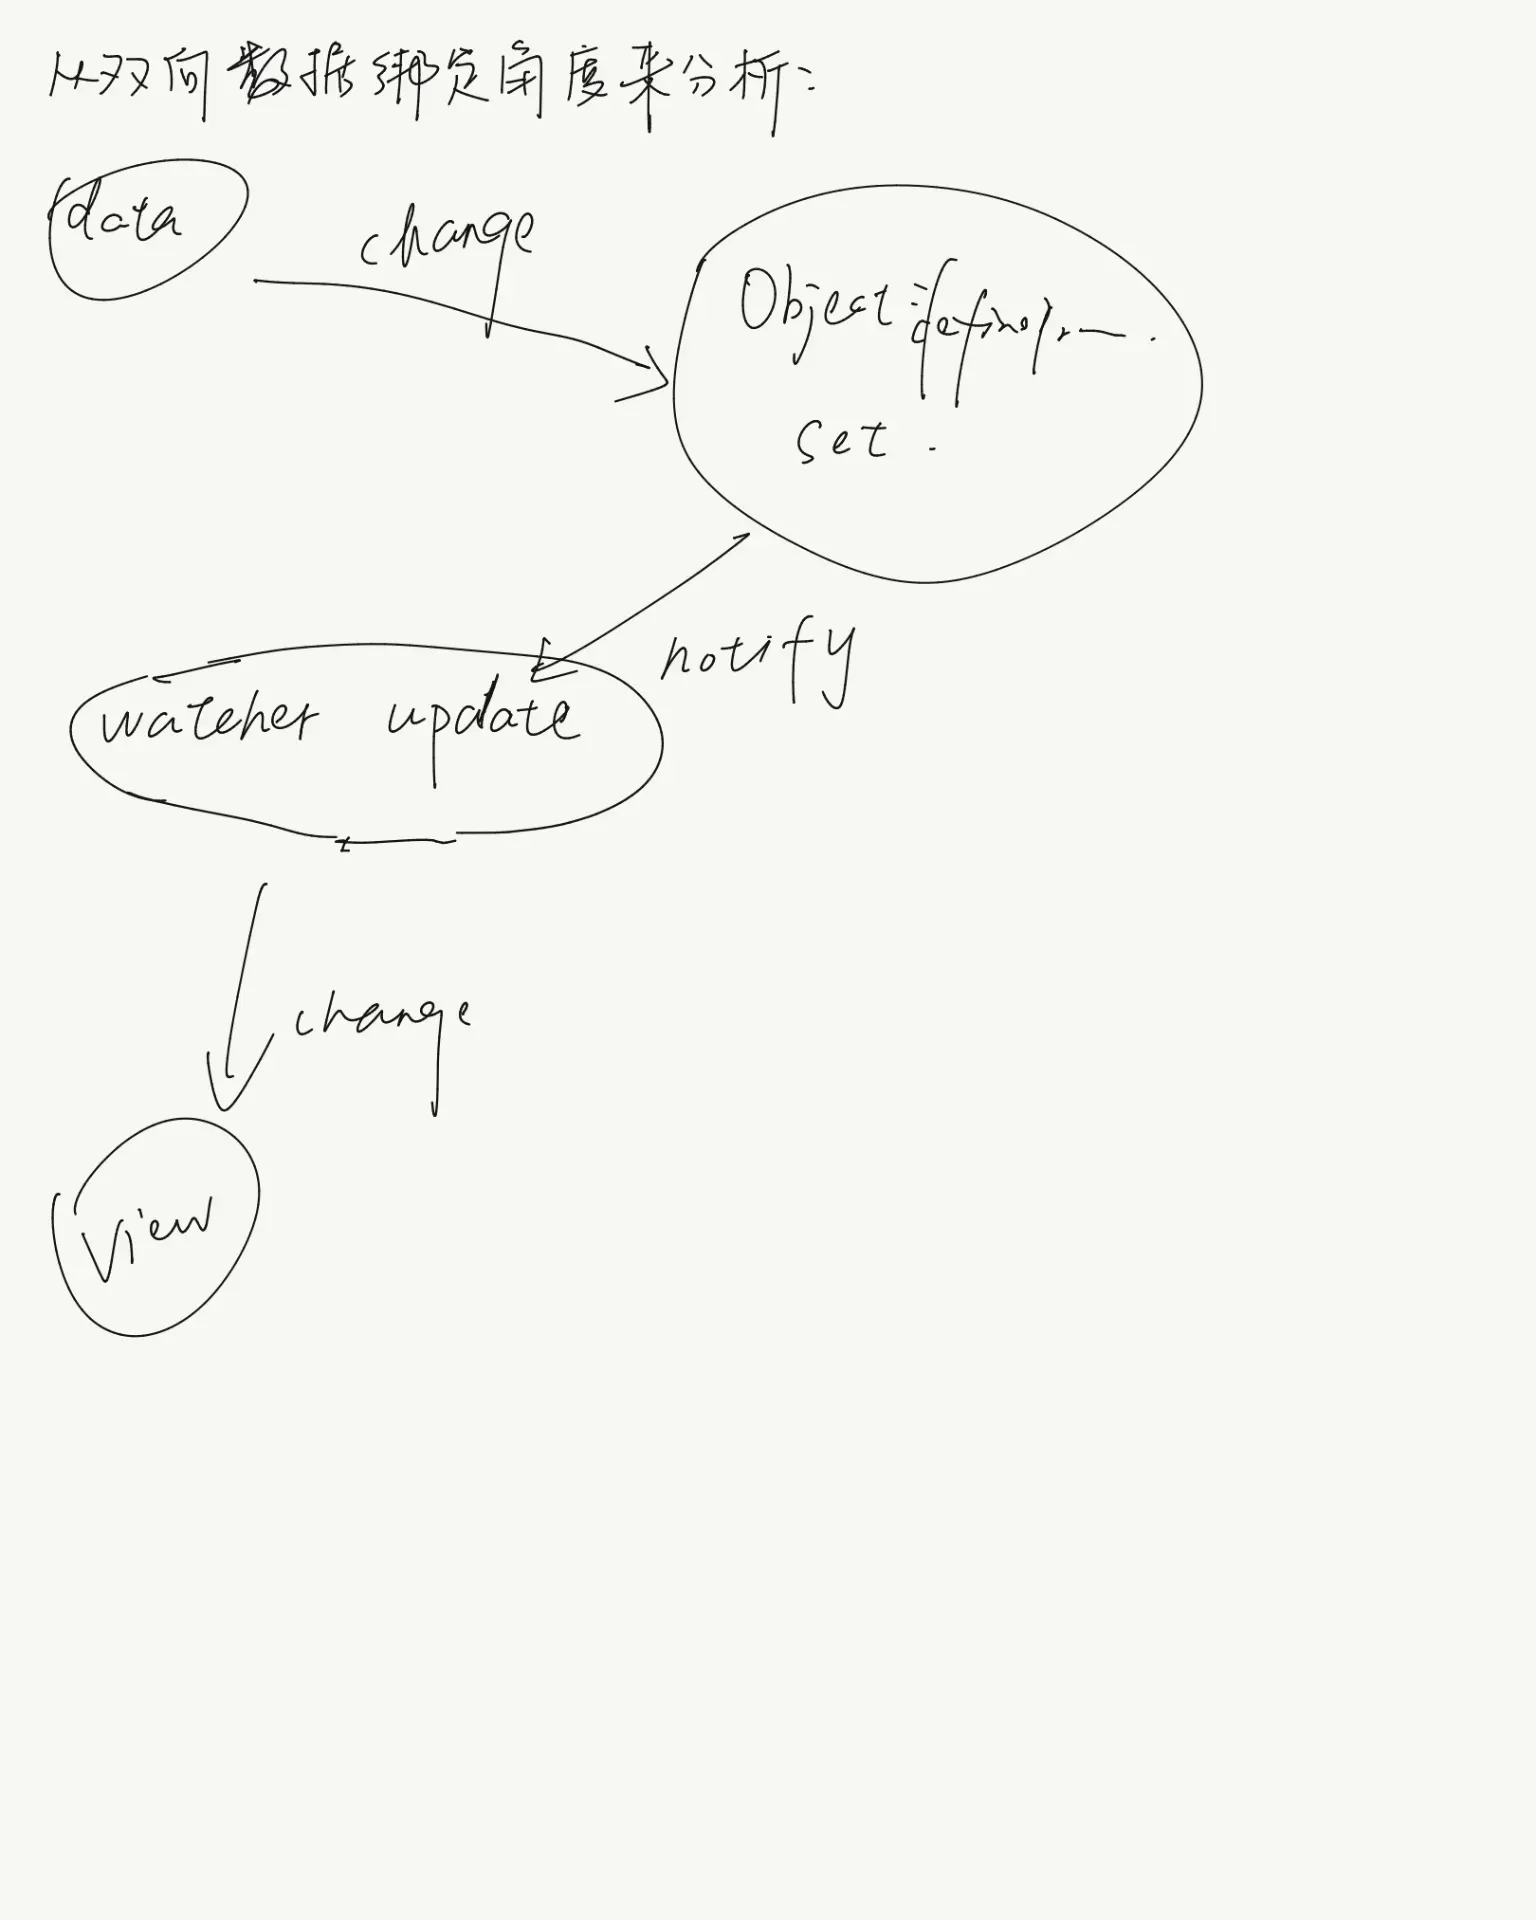 从双向数据绑定角度来分析:
data
change
Object
set.
notify
watcher update
change
view